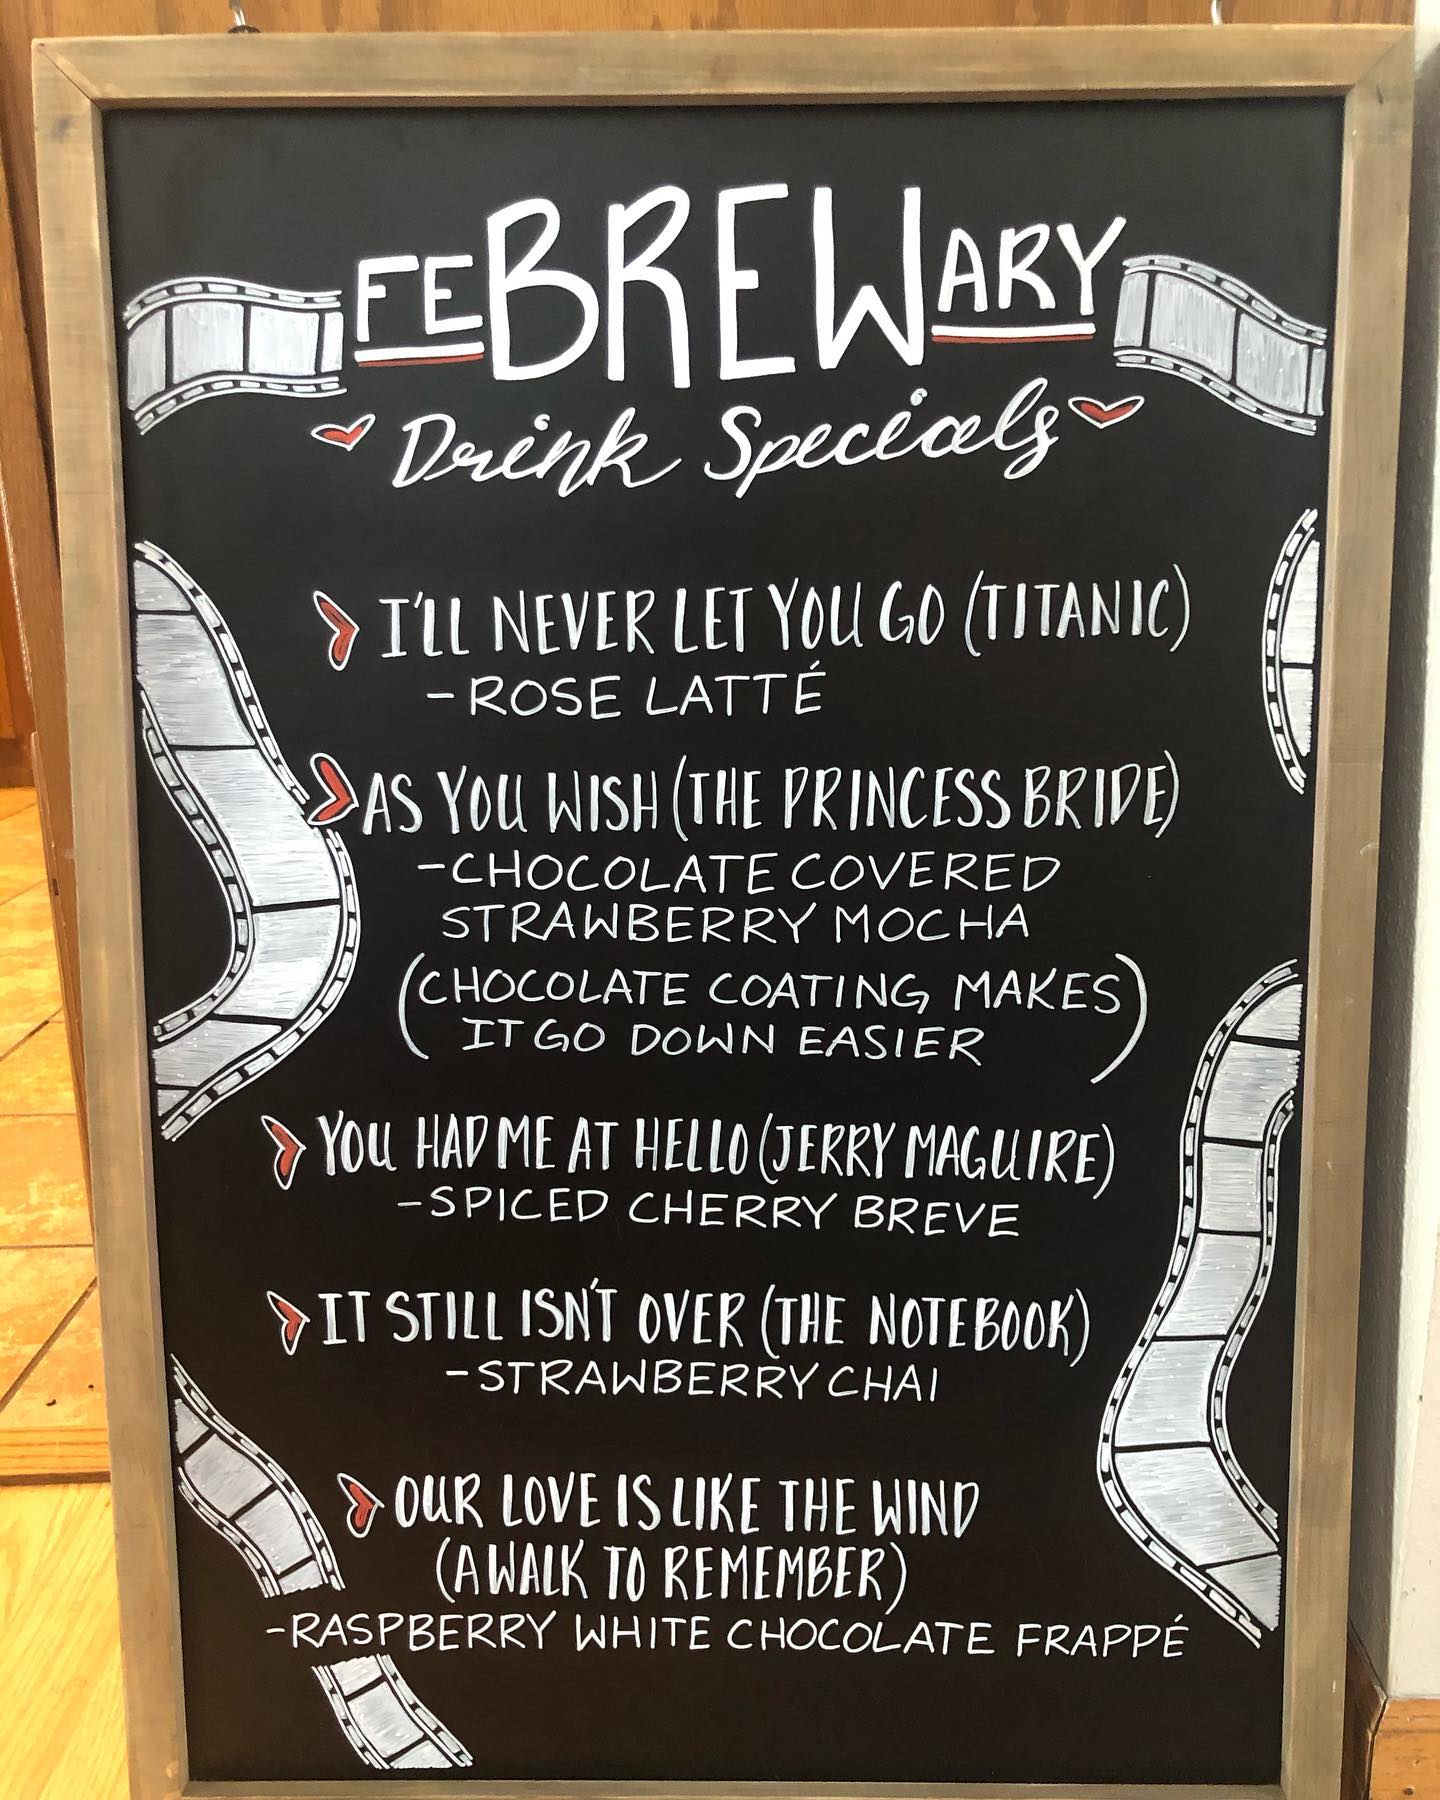 FEBREWARY
Drink Specials
I'LL NEVER LET YOU GO (TITANIC)
-ROSE LATTÉ
AS YOU WISH (THE PRINCESS BRIDE)
-CHOCOLATE COVERED
STRAWBERRY MOCHA
(CHOCOLATE COATING MAKES
IT GO DOWN EASIER)
YOU HAD ME AT HELLO (JERRY MAGUIRE)
-SPICED CHERRY BREVE
IT STILL ISN'T OVER (THE NOTEBOOK)
-STRAWBERRY CHAI
OUR LOVE IS LIKE THE WIND
(A WALK TO REMEMBER)
-RASPBERRY WHITE CHOCOLATE FRAPPÉ